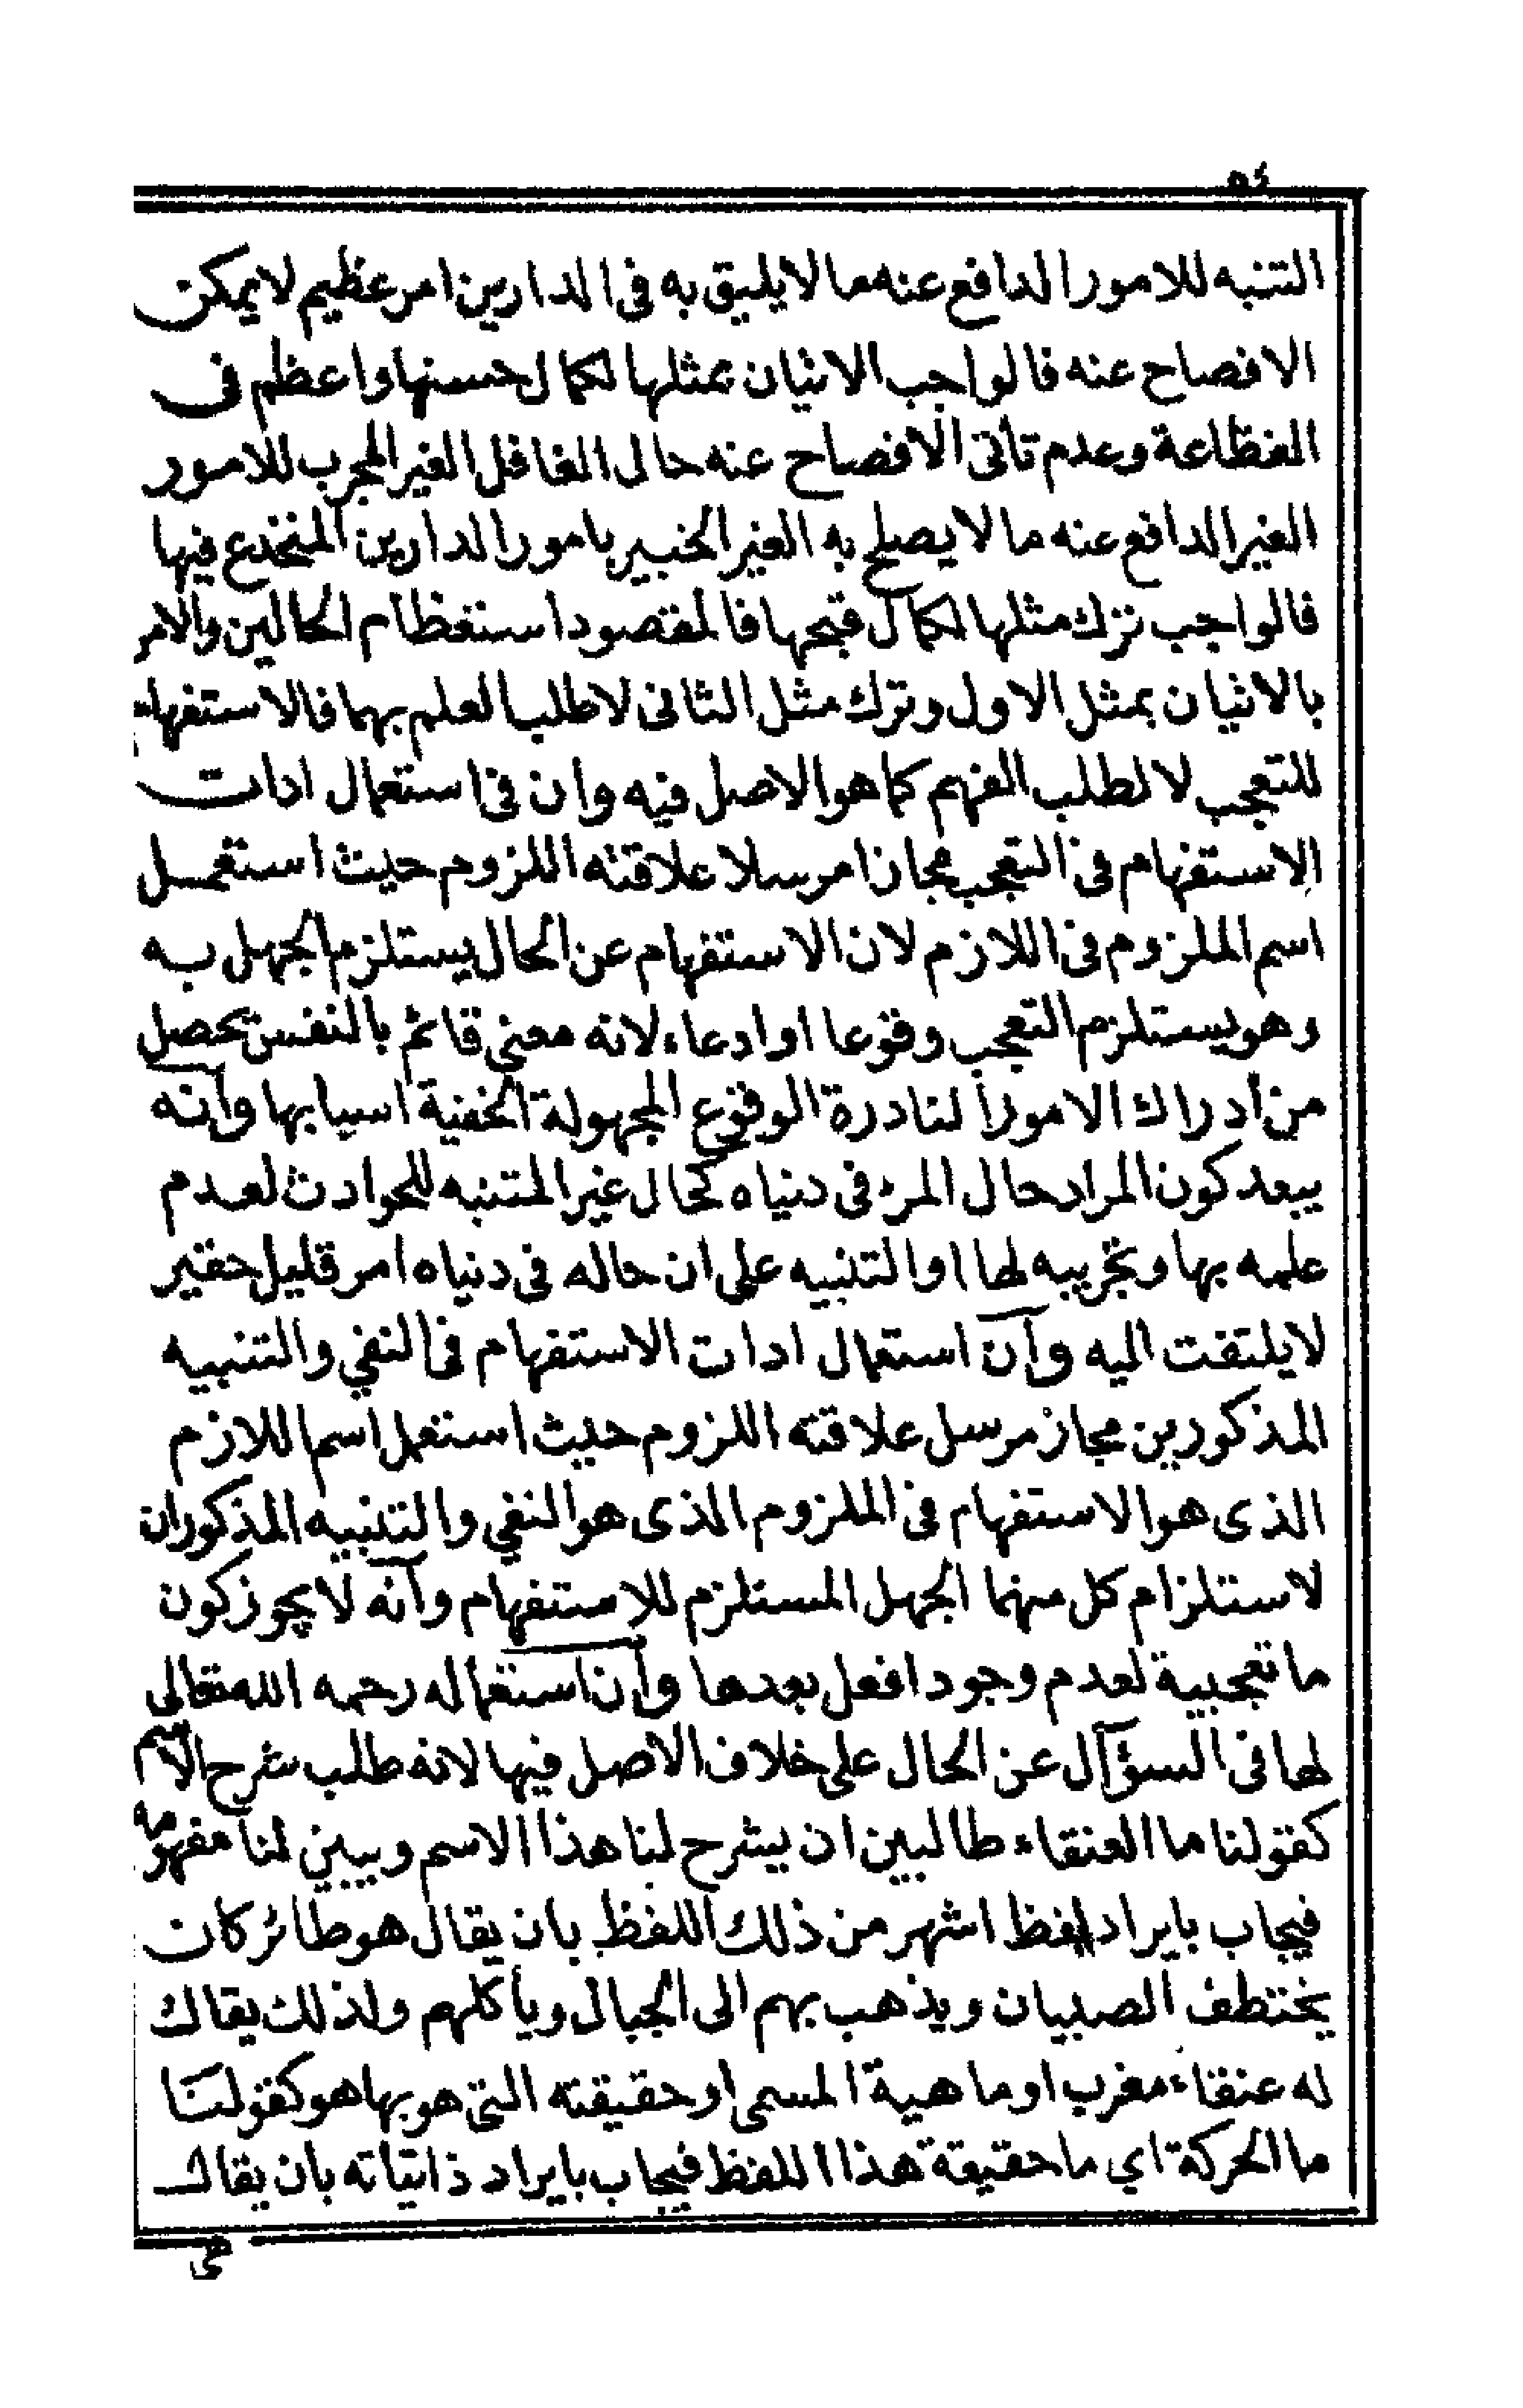 ٥٤
التنبه للامور الدافع عنه ما لا يليق به فى الدارين امر عظيم لا يمكن
الافصاح عنه فالواجب الاتيان بمثلها لكمال حسنها واعظم فى
الفظاعة وعدم تأتى الافصاح عنه حال الغافل الغير المجرب للامور
الغير الدافع عنه ما لا يصلح به الغير الخبير بامور الدارين المنخدع فيها
فالواجب ترك مثلها لكمال قبحها فالمقصود استعظام الحالين والامر
بالاتيان بمثل الاول وترك مثل الثانى لا طلب العلم بهما فالاستفهام
للتعجب لا لطلب الفهم كما هو الاصل فيه وان فى استعمال ادات
الاستفهام فى التعجب مجازا مرسلا علاقته اللزوم حيث استعمل
اسم الملزوم فى اللازم لان الاستفهام عن الحال يستلزم الجهل به
وهو يستلزم التعجب وقوعا او ادعاء لانه معنى قائم بالنفس يحصل
من ادراك الامور النادرة الوقوع المجهولة الخفية اسبابها وانه
يبعد كون المراد حال المرء فى دنياه كحال غير المتنبه للحوادث لعدم
علمه بها وتجريبه لها او التنبيه على ان حاله فى دنياه امر قليل حقير
لا يلتفت اليه وان استعمال ادات الاستفهام فى النفي والتنبيه
المذكورين مجاز مرسل علاقته اللزوم حيث استعمل اسم اللازم
الذى هو الاستفهام فى الملزوم الذى هو النفي والتنبيه المذكوران
لاستلزام كل منهما الجهل المستلزم للاستفهام وانه لا يجوز كون
ما تعجبية لعدم وجود افعل بعدها وان استعماله رحمه الله تعالى
لها فى السؤال عن الحال على خلاف الاصل فيها لانه طلب شرح الاسم
كقولنا ما العنقاء طالبين ان يشرح لنا هذا الاسم ويبين لنا مفهومه
فيجاب بايراد لفظ اشهر من ذلك اللفظ بان يقال هو طائر كان
يختطف الصبيان ويذهب بهم الى الجبال ويأكلهم ولذلك يقال
له عنقاء مغرب او ماهية المسمى او حقيقته التى هو بها هو كقولنا
ما الحركة اي ما حقيقة هذا اللفظ فيجاب بايراد ذاتياته بان يقال
هى